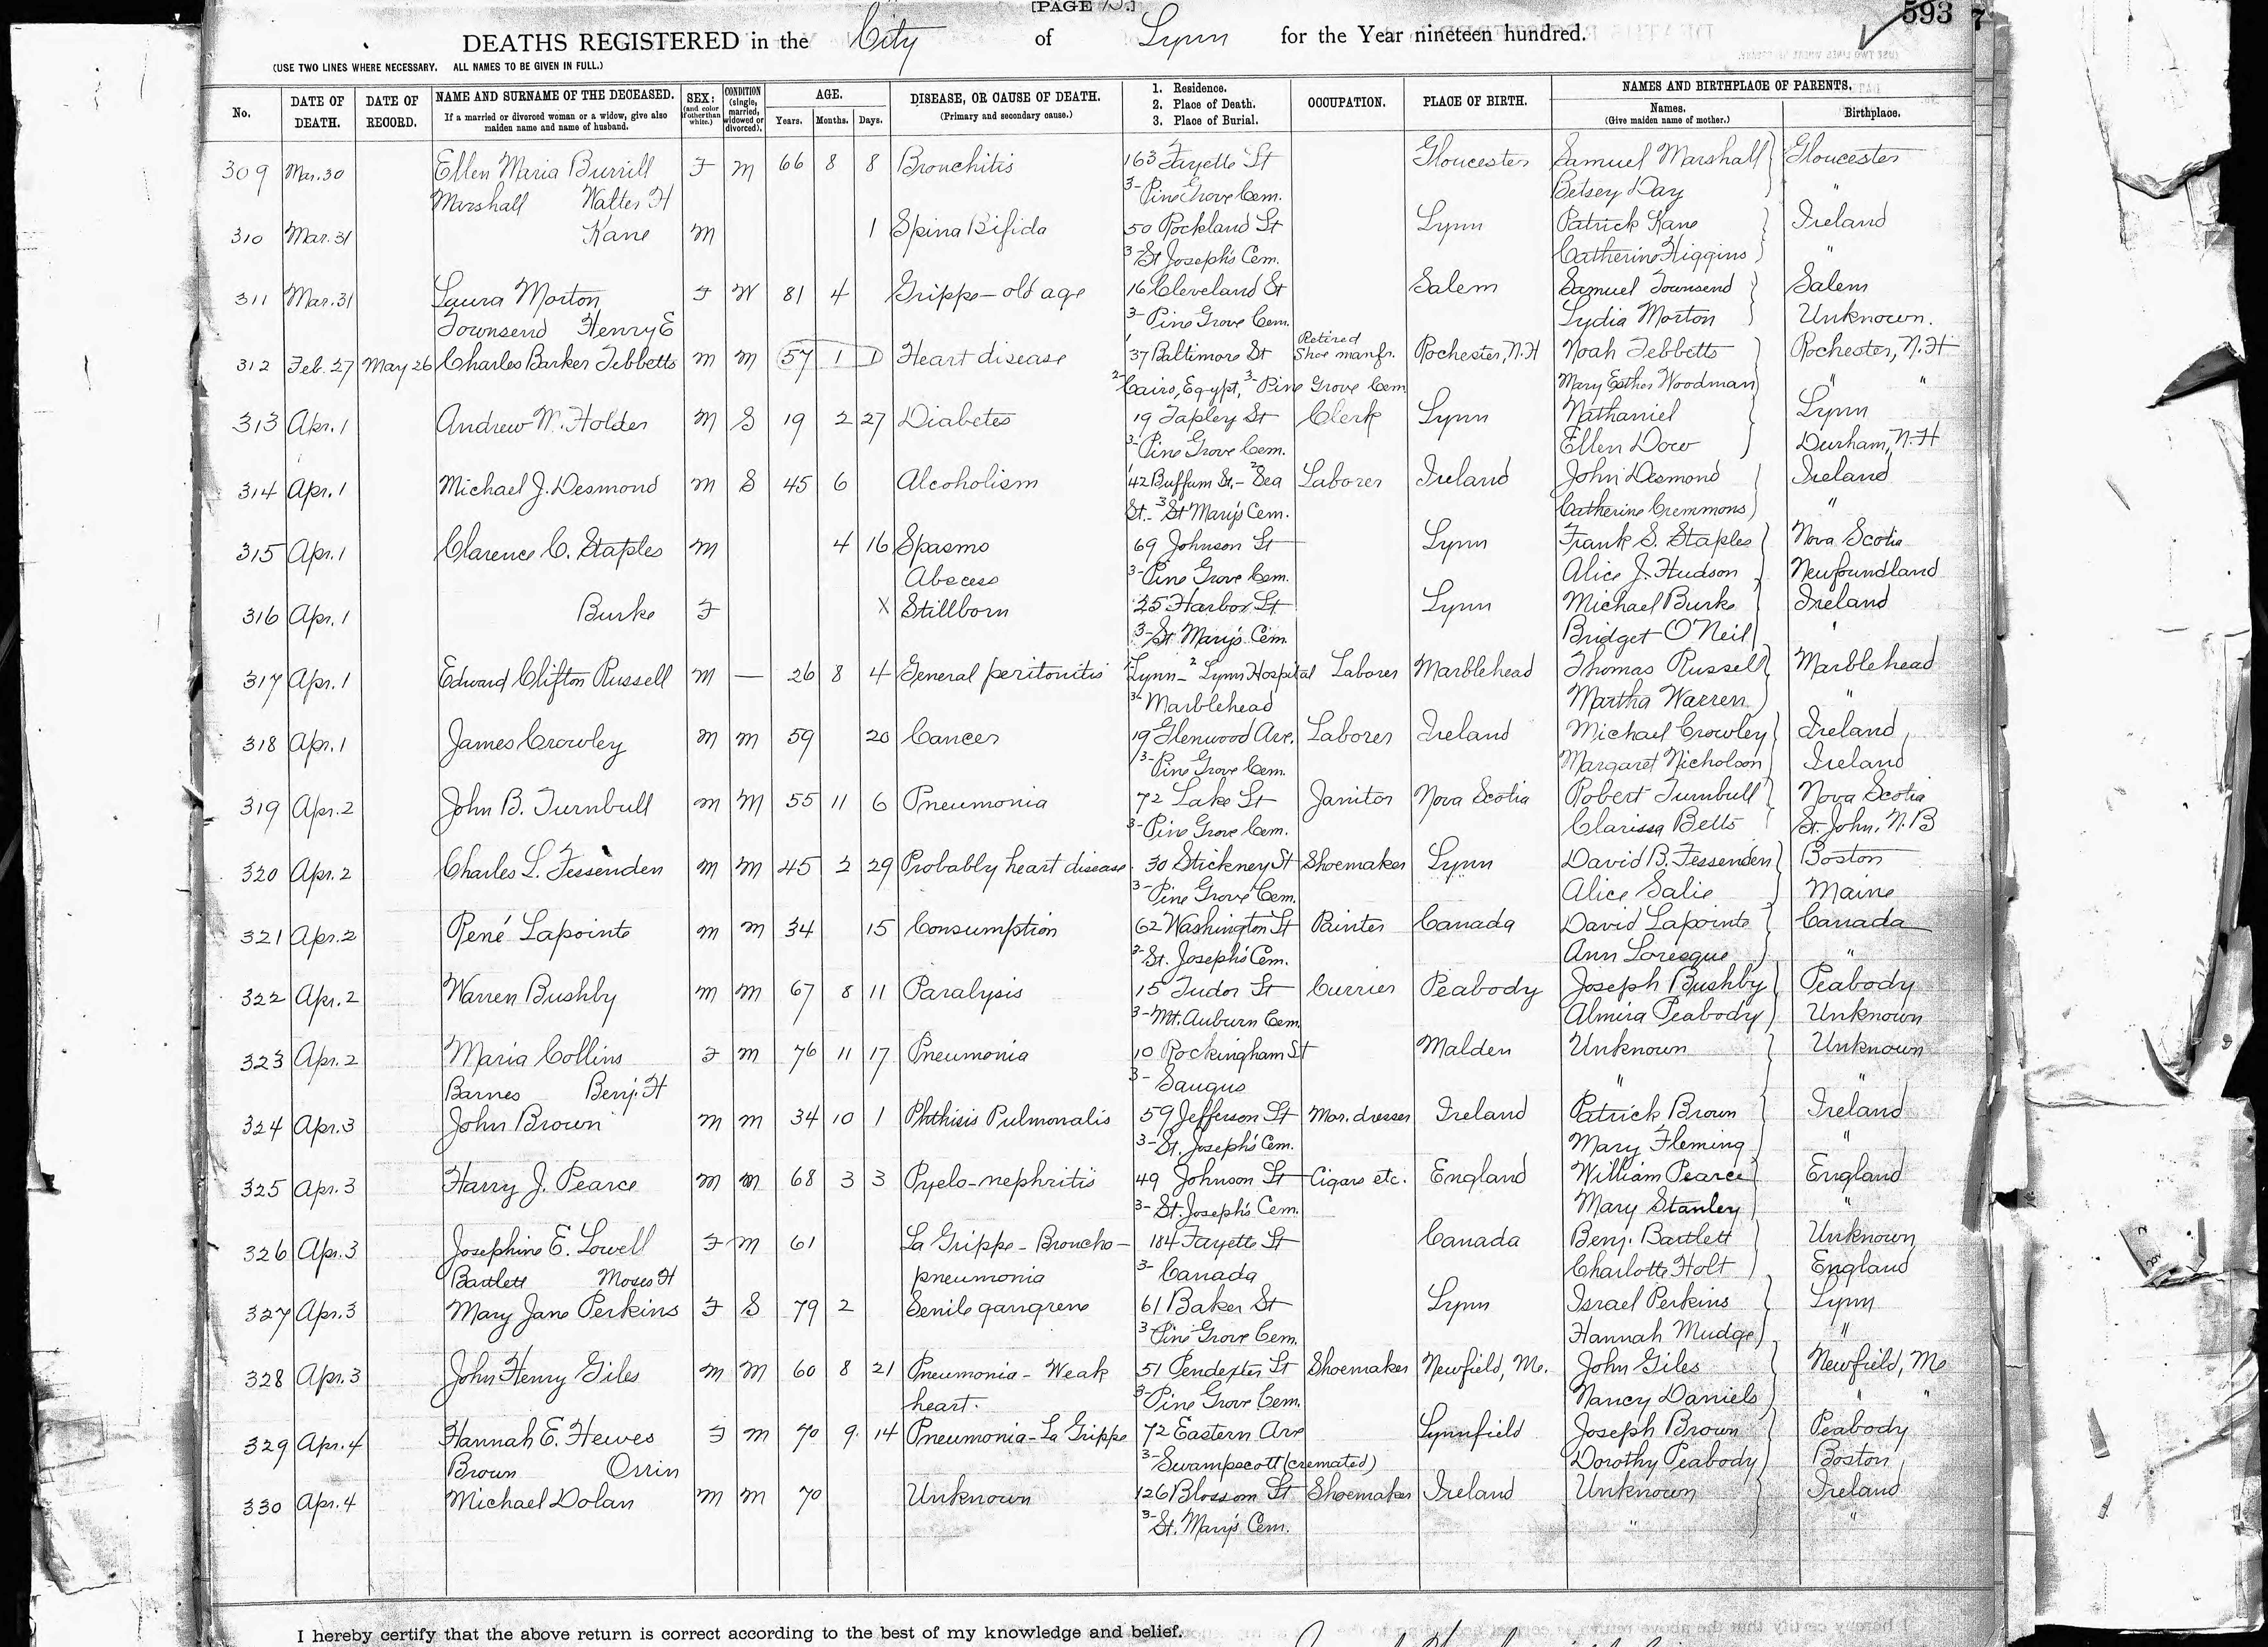 [PAGE 15.]
593 7
DEATHS REGISTERED in the City of Lynn for the Year nineteen hundred.
(USE TWO LINES WHERE NECESSARY. ALL NAMES TO BE GIVEN IN FULL.)
No. DATE OF DEATH. DATE OF RECORD. NAME AND SURNAME OF THE DECEASED. If a married or divorced woman or a widow, give also maiden name and name of husband. SEX: (and color if other than white.) CONDITION (single, married, widowed or divorced). AGE. Years. Months. Days. DISEASE, OR CAUSE OF DEATH. (Primary and secondary cause.) 1. Residence. 2. Place of Death. 3. Place of Burial. OCCUPATION. PLACE OF BIRTH. NAMES AND BIRTHPLACE OF PARENTS. Names. (Give maiden name of mother.) Birthplace.
309 Mar. 30 Ellen Maria Burrill F M 66 8 8 Bronchitis 163 Fayette St Gloucester Samuel Marshall Gloucester
Marshall Walter H 3- Pine Grove Cem. Betsey Day "
310 Mar. 31 Kane M 1 Spina Bifida 50 Rockland St Lynn Patrick Kane Ireland
3- St Joseph's Cem. Catherine Higgins "
311 Mar. 31 Laura Morton F W 81 4 Grippe - old age 16 Cleveland St Salem Samuel Townsend Salem
Townsend Henry E 3- Pine Grove Cem. Lydia Morton Unknown.
312 Feb. 27 May 26 Charles Barker Tebbetts M M 57 1 1 Heart disease 1 37 Baltimore St Retired Shoe manfr. Rochester, N.H Noah Tebbetts Rochester, N.H
2- Cairo, Egypt, 3- Pine Grove Cem Mary Esther Woodman " "
313 Apr. 1 Andrew N. Holder M S 19 2 27 Diabetes 19 Tapley St Clerk Lynn Nathaniel Lynn
3- Pine Grove Cem. Ellen Dow Durham, N.H
314 Apr. 1 Michael J. Desmond M S 45 6 Alcoholism 1 42 Buffum St. - 2 Sea Laborer Ireland John Desmond Ireland
St. - 3 St Mary's Cem. Catherine Cremmons "
315 Apr. 1 Clarence C. Staples M 4 16 Spasms 69 Johnson St Lynn Frank S. Staples Nova Scotia
Abscess 3- Pine Grove Cem. Alice J. Hudson Newfoundland
316 Apr. 1 Burke F X Stillborn 25 Harbor St Lynn Michael Burke Ireland
3- St Mary's Cem. Bridget O'Neil "
317 Apr. 1 Edward Clifton Russell M — 26 8 4 General peritonitis 1 Lynn - 2 Lynn Hospital Laborer Marblehead Thomas Russell Marblehead
3- Marblehead Martha Warren "
318 Apr. 1 James Crowley M M 59 20 Cancer 19 Glenwood Ave. Laborer Ireland Michael Crowley Ireland
3- Pine Grove Cem. Margaret Nicholson Ireland
319 Apr. 2 John B. Turnbull M M 55 11 6 Pneumonia 72 Lake St Janitor Nova Scotia Robert Turnbull Nova Scotia
3- Pine Grove Cem. Clarissa Betts St. John, N.B
320 Apr. 2 Charles L. Fessenden M M 45 2 29 Probably heart disease 30 Stickney St Shoemaker Lynn David B. Fessenden Boston
3- Pine Grove Cem. Alice Salie Maine
321 Apr. 2 René Lapointe M M 34 15 Consumption 62 Washington St Painter Canada David Lapointe Canada
3- St. Joseph's Cem. Ann Loresque "
322 Apr. 2 Warren Bushby M M 67 8 11 Paralysis 15 Tudor St Currier Peabody Joseph Bushby Peabody
3- Mt. Auburn Cem. Almira Peabody Unknown
323 Apr. 2 Maria Collins F M 76 11 17 Pneumonia 10 Rockingham St Malden Unknown Unknown
Barnes Benj. H 3- Saugus " "
324 Apr. 3 John Brown M M 34 10 1 Phthisis Pulmonalis 59 Jefferson St Mor. dresser Ireland Patrick Brown Ireland
3- St. Joseph's Cem. Mary Fleming "
325 Apr. 3 Harry J. Pearce M M 68 3 3 Pyelo-nephritis 49 Johnson St Cigars etc. England William Pearce England
3- St. Joseph's Cem. Mary Stanley "
326 Apr. 3 Josephine E. Lowell F M 61 La Grippe - Broncho- 184 Fayette St Canada Benj. Bartlett Unknown
Bartlett Moses H pneumonia 3- Canada Charlotte Holt England
327 Apr. 3 Mary Jane Perkins F S 79 2 Senile gangrene 61 Baker St Lynn Israel Perkins Lynn
3- Pine Grove Cem. Hannah Mudge "
328 Apr. 3 John Henry Giles M M 60 8 21 Pneumonia - Weak 51 Pendexter St Shoemaker Newfield, Me. John Giles Newfield, Me
heart. 3- Pine Grove Cem. Nancy Daniels " "
329 Apr. 4 Hannah E. Hewes F M 70 9 14 Pneumonia - La Grippe 72 Eastern Ave Lynnfield Joseph Brown Peabody
Brown Orrin 3- Swampscott (cremated) Dorothy Peabody Boston
330 Apr. 4 Michael Dolan M M 70 Unknown 126 Blossom St Shoemaker Ireland Unknown Ireland
3- St. Mary's Cem. " "
I hereby certify that the above return is correct according to the best of my knowledge and belief.